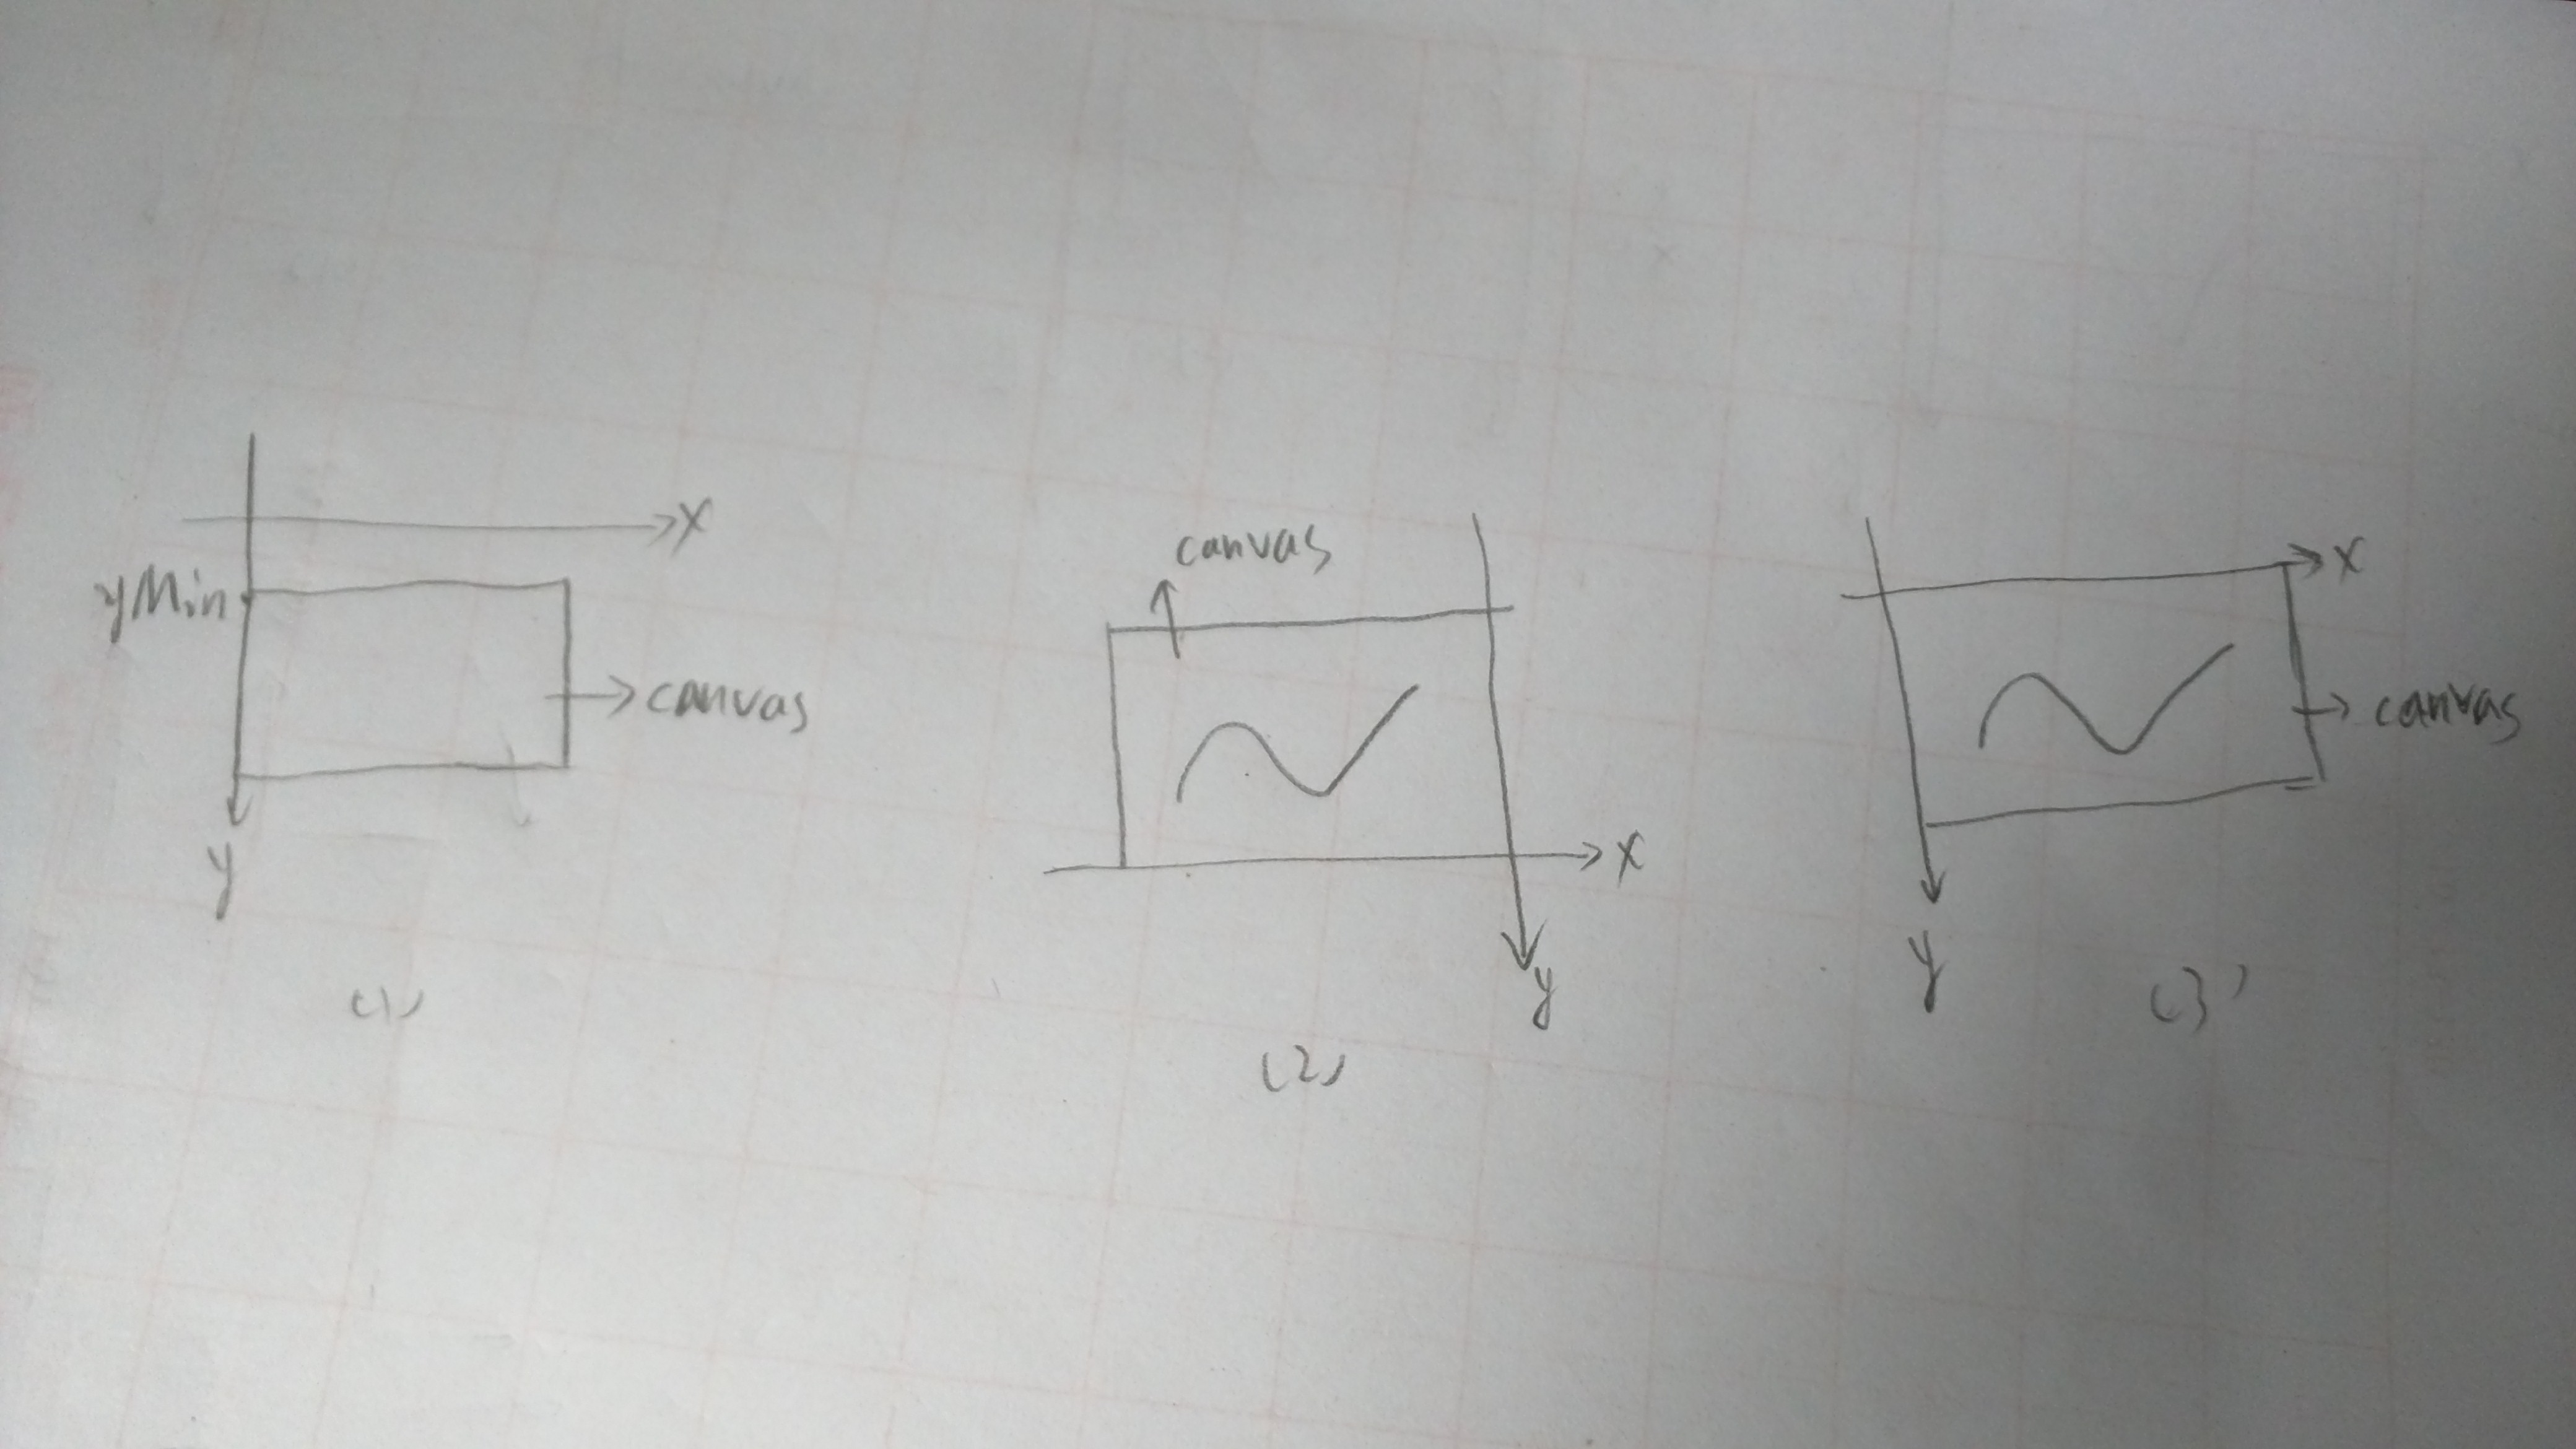 x
yMin
canvas
y
(1)
canvas
x
y
(2)
x
canvas
y
(3)